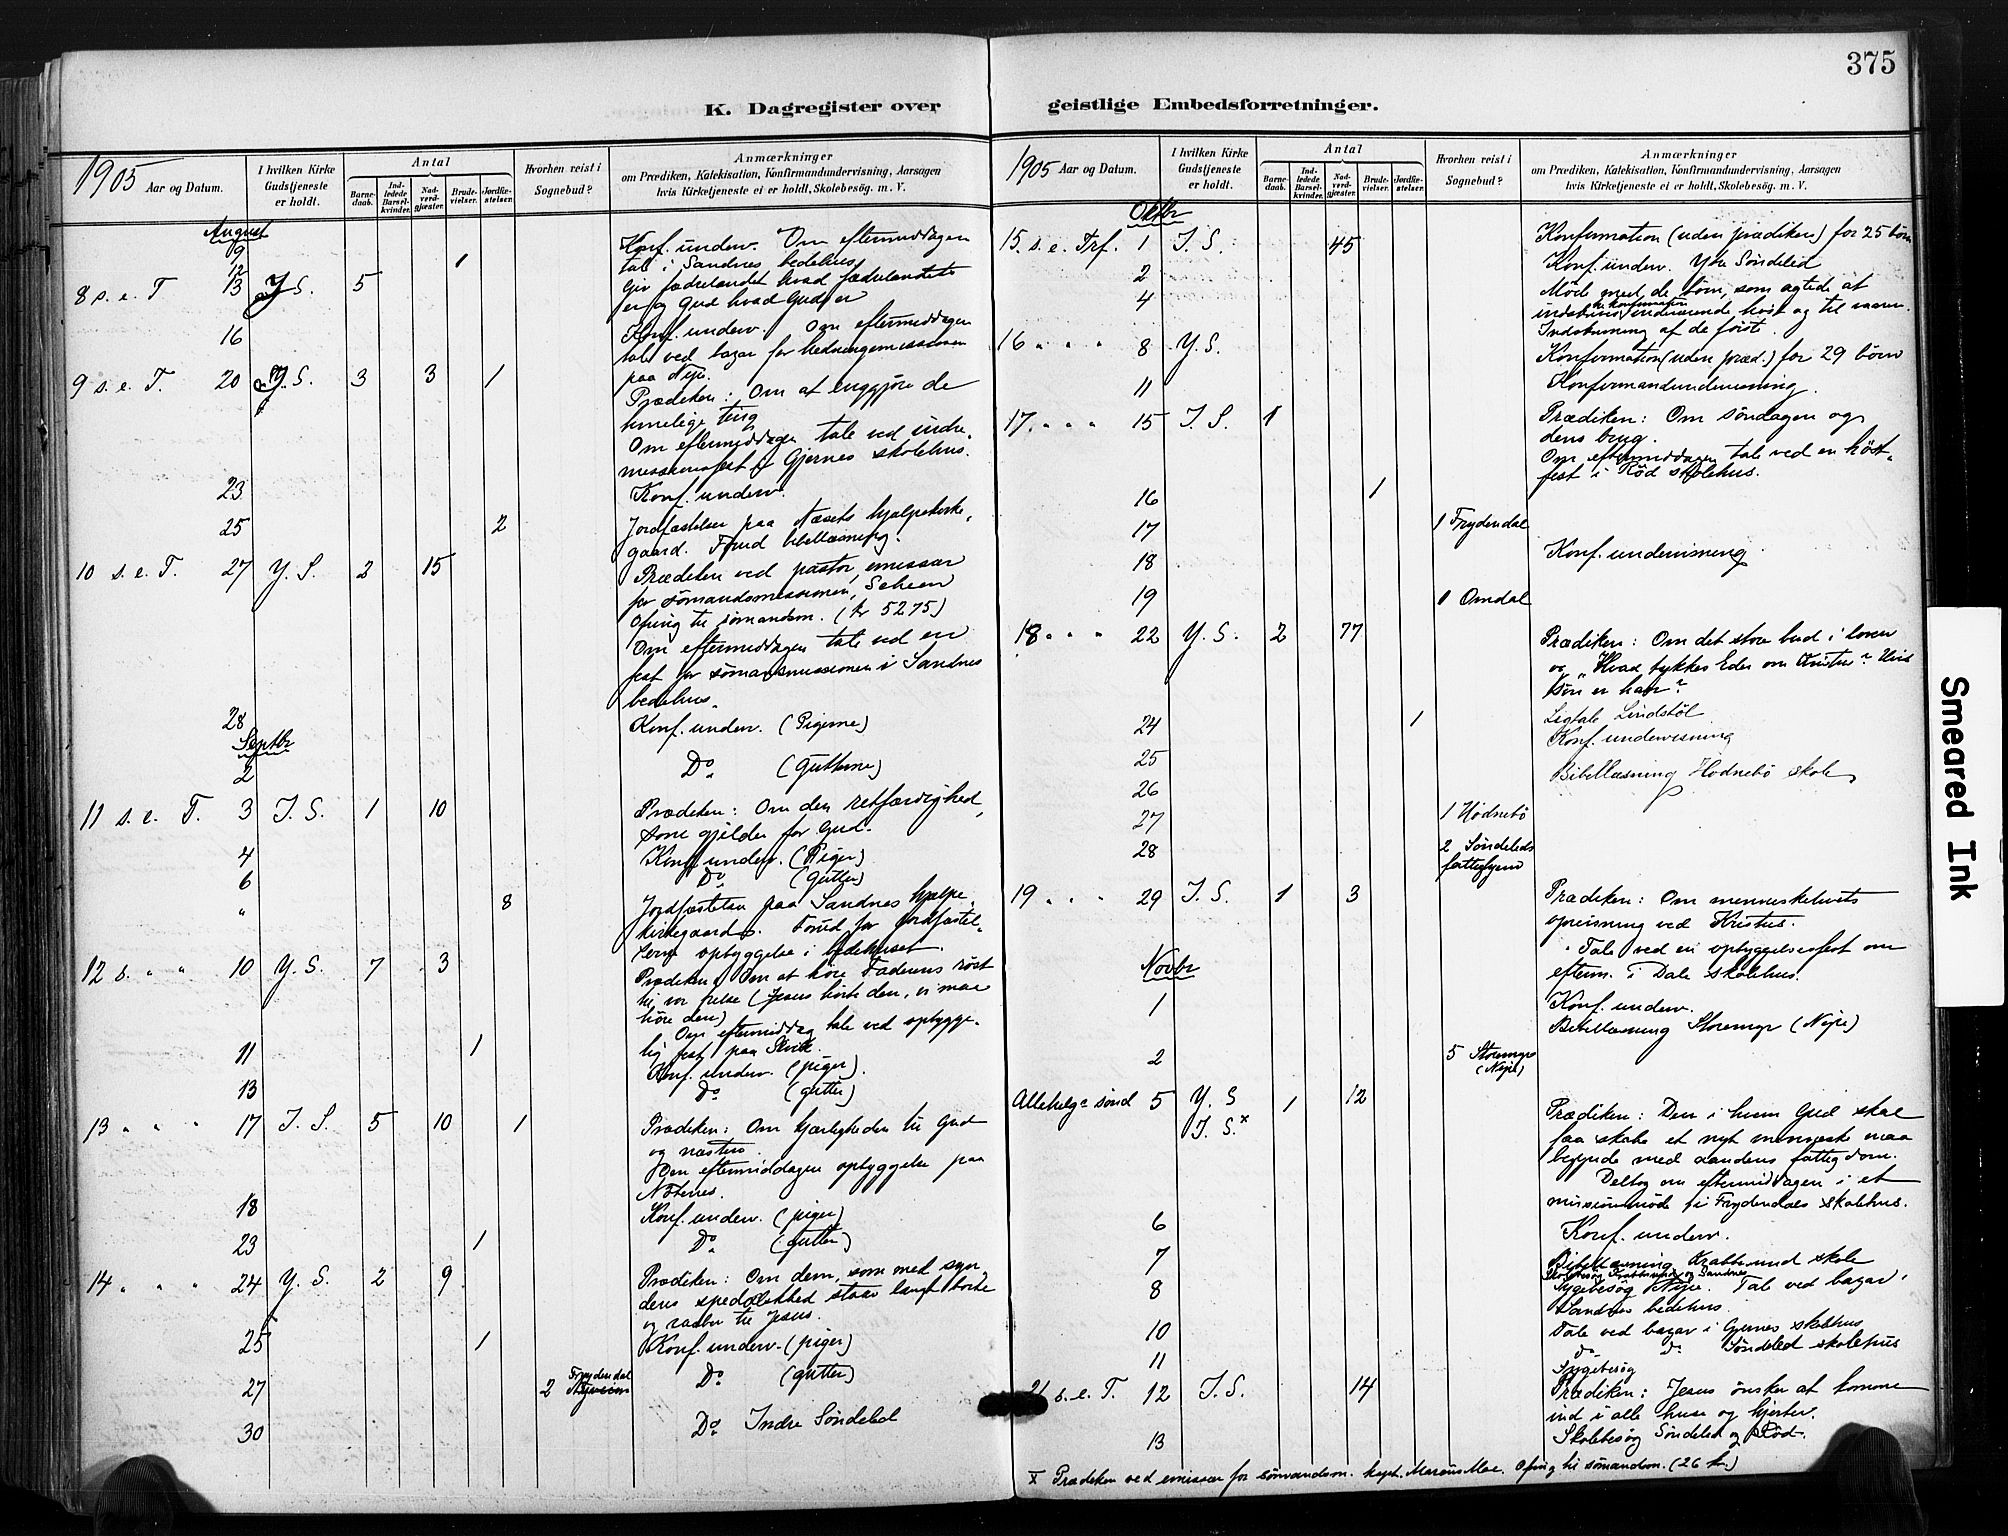 375
K. Dagregister over
geistlige Embedsforretninger.
1905 Aar og Datum.
I hvilken Kirke Gudstjeneste er holdt.
Antal
Barnedaab.
Indledede Barselkvinder.
Nadverdgjæster.
Brudevielser.
Jordfæstelser.
Hvorhen reist i Sognebud?
Anmærkninger
om Prædiken, Katekisation, Konfirmandundervisning, Aarsagen
hvis Kirketjeneste ei er holdt, Skolebesøg. m. V.
August
9 1 Konf. underv. Om eftermiddagen
tale i Sandnes bedehus
12
8 s. e. T 13 Y. S. 5 Giv fædrelandet hvad fædrelandets
er og Gud hvad Guds er
16 Konf. underv. Om eftermiddagen
tale ved bazar for hedningemissionen
paa Nipe.
9 s. e. T. 20 Y. S. 3 3 1 Prædiken: Om at
himelige ting
Om eftermiddagen tale ved indre
missionsfest i Gjernes skolehus.
23 Konf. underv.
25 2 Jordfæstelser paa Næsets hjælpekirke-
gaard. Forud bibellæsning.
10 s. e. T. 27 Y. S. 2 15 Prædiken ved pastor, emissær
for sømandsmissionen, Scheen
Ofring til sømandsm. (kr 52 75)
Om eftermiddagen tale ved en
fest for sømandsmissionen i Sandnes
bedehus.
28 Konf. underv. (Pigerne)
Septbr
2 Do (Gutterne)
11 s. e. T. 3 I. S. 1 10 Prædiken: Om den retfærdighed,
som gjælder for Gud.
4 Konf. underv. (Piger)
6 Do (gutter)
" 8 Jordfæstelse paa Sandnes hjælpe-
kirkegaard. Forud for jordfæstel-
serne opbyggelse i bedehuset.
12 s. " " 10 Y. S. 7 3 Prædiken: Om at høre Faderens røst
til vor frelse (Jesus hørte den, vi maa
høre den)
Om eftermiddag tale ved opbygge-
lig fest paa
11 1 Konf. underv. (piger).
13 Do (gutter)
13 " " " 17 I. S. 5 10 1 Prædiken: Om kjærligheden til Gud
og næsten.
Om eftermiddagen opbyggelse paa
18 Konf. underv. (piger)
23 1 Do (gutter)
14 " " " 24 Y. S. 2 9 Prædiken: Om dem, som med syn-
dens spedalskhed staar langt borte
og raaber til Jesus.
25 1 Konf. underv. (piger)
27 2 Frydendal Do (gutter)
30 Do Indre Søndeled
1905 Aar og Datum.
I hvilken Kirke Gudstjeneste er holdt.
Antal
Barnedaab.
Indledede Barselkvinder.
Nadverdgjæster.
Brudevielser.
Jordfæstelser.
Hvorhen reist i Sognebud?
Anmærkninger
om Prædiken, Katekisation, Konfirmandundervisning, Aarsagen
hvis Kirketjeneste ei er holdt, Skolebesøg. m. V.
Oktbr
15. s. e. Trf. 1 I. S. 45 Konfirmation (uden prædiken) for 25 børn
2 Konf. underv. Ytre Søndeled
4 Møde med de børn, som agtede at
indskrives til konfirmation indeværende høst og til vaaren.
Indskrivning af de første
16 " " " 8 Y. S. Konfirmation (uden præd.) for 29 børn
11 Konfirmandundervisning.
17. " " " 15 I. S. 1 Prædiken: Om søndagen og
dens brug.
Om eftermiddagen tale ved en høst-
fest i Rød skolehus.
16 1
17 1 Frydendal
18 Konf. undervisning
19 1 Omdal
18 " " " 22 Y. S. 2 77 Prædiken: Om det store bud i loven
og "Hvad tykkes Eder om Kristus? Hvis
søn er han?"
24 1 Ligtale Lindstøl
25 Konf. undervisning
26 Bibellæsning Hodnebø skole
27 1 Hodnebø
28 2 Søndeleds
fattighjem
19 " " " 29 I. S. 1 3 Prædiken: Om menneskelivets
opreisning ved Kristus.
" Tale ved en opbyggelsesfest om
efterm. i Dale skolehus.
Novbr
1 Konf. underv.
Bibellæsning Storemyr (Nipe)
2 5 Storemyr
(Nipe)
Allehelg. sønd 5 Y. S 1 12 Prædiken: Den i hvem Gud skal
I. S.x faa skabe et nyt menneske maa
begynde med aandens fattigdom.
Deltog om eftermiddagen i et
missionsmøde i Frydendals skolehus.
6 Konf. underv.
7 Bibellæsning Krabbesund skole
Skolebesøg Krabbesund og Sandnes
8 Sygebesøg Nipe. Tale ved bazar i
Sandnes bedehus.
10 Tale ved bazar i Gjernes skolehus
11 do do Søndeled skolehus
Sygebesøg
21 s. e. T. 12 I. S. 14 Prædiken: Jesus ønsker at komme
ind i alle huse og hjerter.
13 Skolebesøg Søndeled og Rød.
x Prædiken ved emissær for sømandsm. kapt. Marcus Moe. Ofring til sømandsm. (26 kr.)
Smeared Ink